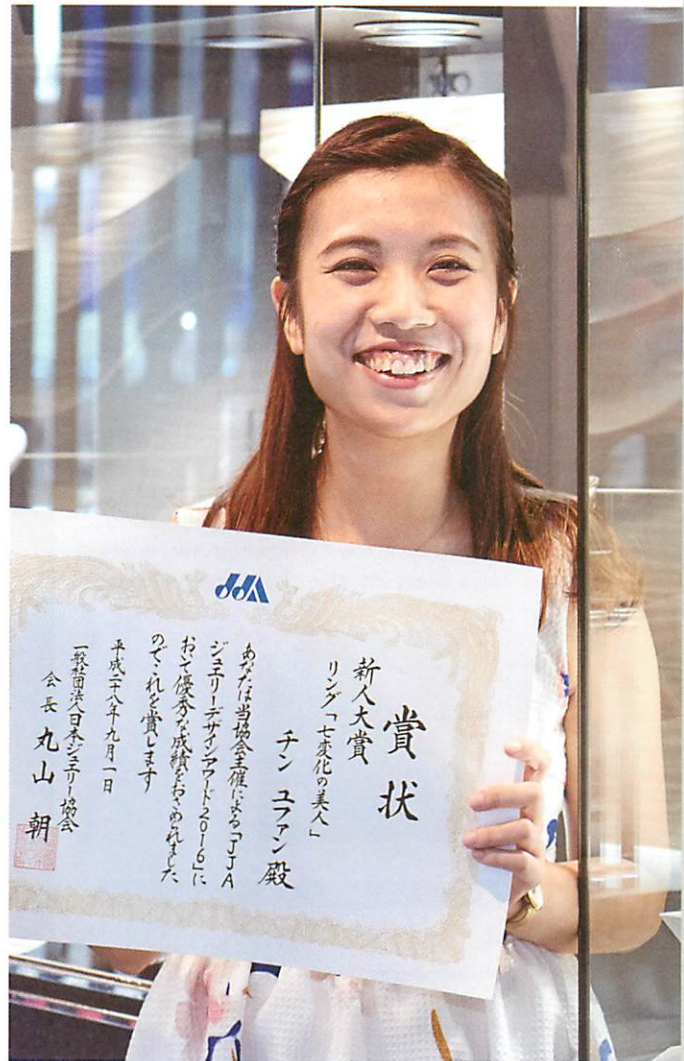 JJA
賞状
新人大賞
リング「七変化の美人」
チン ユファン 殿
あなたは当協会主催による「JJA
ジュエリーデザインアワード2016」に
おいて優秀な成績をおさめられました
のでこれを賞します
平成二十八年九月一日
一般社団法人日本ジュエリー協会
会長 丸山 朝